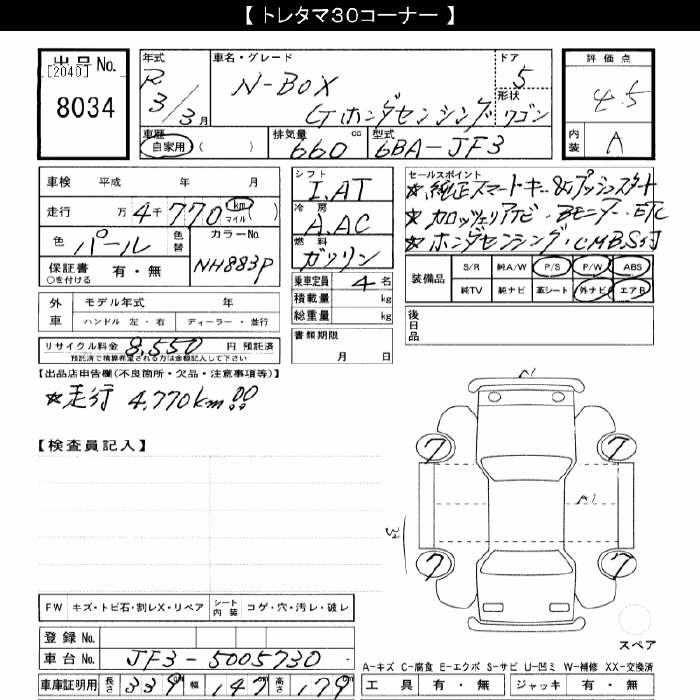 【 トレタマ30コーナー 】
出品No.
[2040]
8034
年式
R 3/3月
車名・グレード
N-BOX
G ホンダセンシング
ドア
5
形状
ワゴン
評価点
4.5
内装
A
車歴
自家用・( )
排気量
660 cc
型式
6BA-JF3
車検 平成 年 月
走行 万4千770 km マイル ( )
色 パール
色替
カラーNo.
NH883P
保証書 有・無
○を付ける
外車
モデル年式 年
ハンドル 左・右 ディーラー・並行
リサイクル料金 8,550 円 預託済
預託済で積算希望される方は金額記入して下さい
シフト
I.AT
冷房
A.AC
燃料
ガソリン
乗車定員 4 名
積載量 kg
総重量 kg
書類期限
月 日
セールスポイント
★純正スマートキー&プッシュスタート
★カロッツェリアナビ・Bモニター・ETC
★ホンダセンシング・CMBS付
装備品
S/R 純A/W P/S P/W ABS
純TV 純ナビ 革シート 外ナビ エアB
後日品
【出品店申告欄(不良箇所・欠品・注意事項等)】
★走行 4,770km!!
【検査員記入】
A1
7 7
A1
7 7
FW キズ・トビ石・割レX・リペア シート内装 コゲ・穴・汚レ・破レ
登録No.
車台No. JF3-5005730
車庫証明用 長さ 339 幅 147 高さ 179
スペア
A-キズ C-腐食 E-エクボ S-サビ U-凹ミ W-補修 XX-交換済
工具 有・無 ジャッキ 有・無